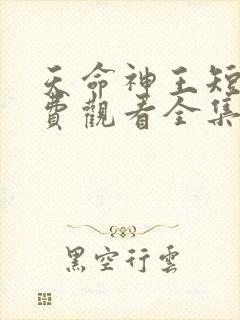 天命神王短
費觀看全集
黑空行雲